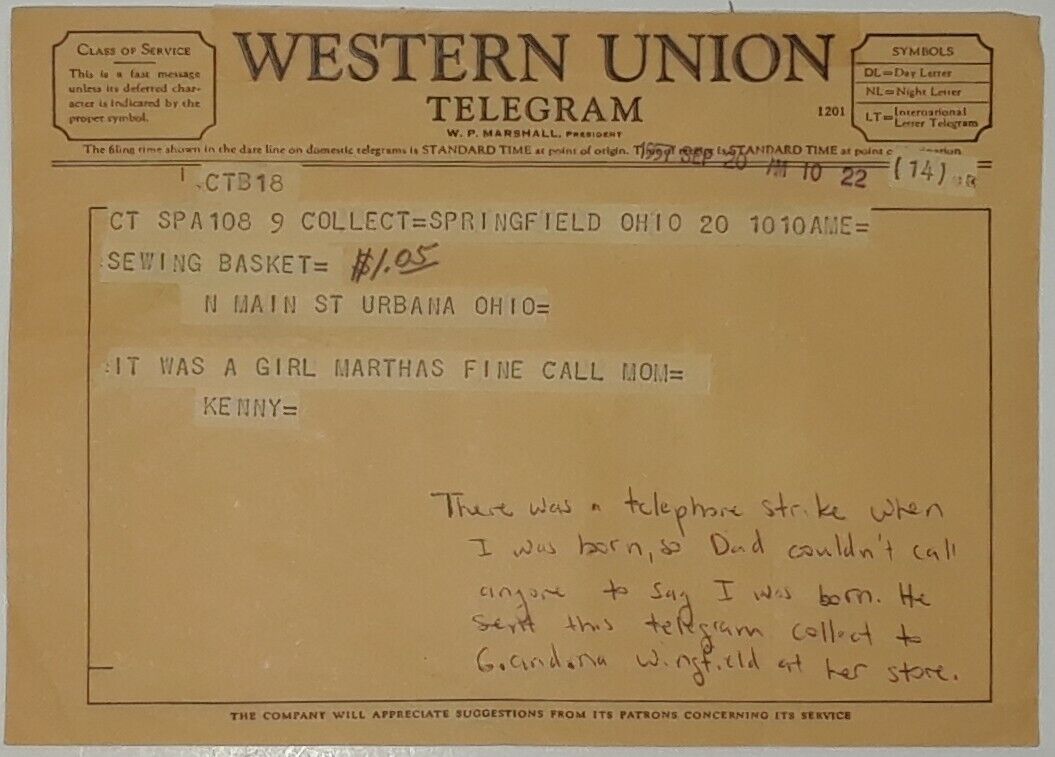 CLASS OF SERVICE
This is a fast message
unless its deferred char-
acter is indicated by the
proper symbol.
WESTERN UNION
TELEGRAM
W. P. MARSHALL, PRESIDENT
1201
SYMBOLS
DL=Day Letter
NL=Night Letter
LT=International
Letter Telegram
The filing time shown in the date line on domestic telegrams is STANDARD TIME at point of origin. Time of is STANDARD TIME at point
1957 SEP 20 AM 10 22
(14)
1 CTB18
CT SPA108 9 COLLECT=SPRINGFIELD OHIO 20 1010AME=
:SEWING BASKET= $1.05
N MAIN ST URBANA OHIO=
:IT WAS A GIRL MARTHAS FINE CALL MOM=
KENNY=
There was a telephone strike when
I was born, so Dad couldn't call
anyone to say I was born. He
sent this telegram collect to
Grandma Wingfield at her store.
THE COMPANY WILL APPRECIATE SUGGESTIONS FROM ITS PATRONS CONCERNING ITS SERVICE